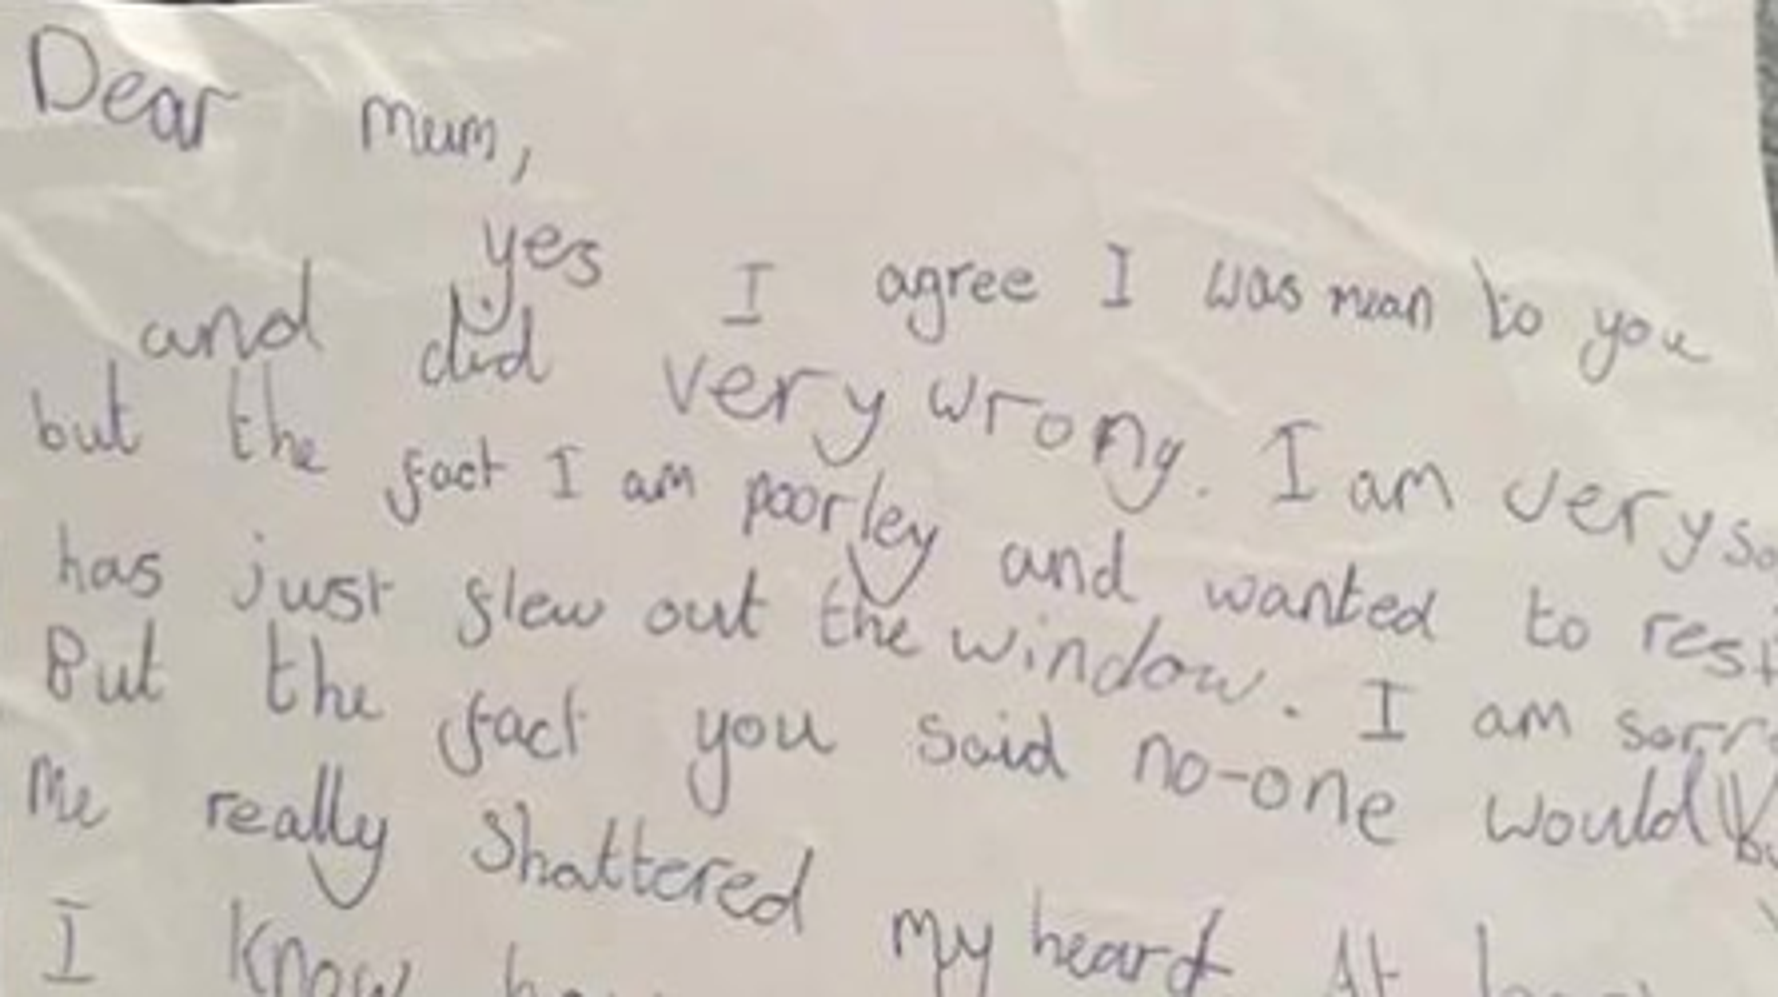 Dear mum,
yes I agree I was mean to you
and did very wrong. I am very
but the fact I am poorley and wanted to rest
has just flew out the window. I am
But the fact you said no-one would
Me really Shattered my heart. At
I know